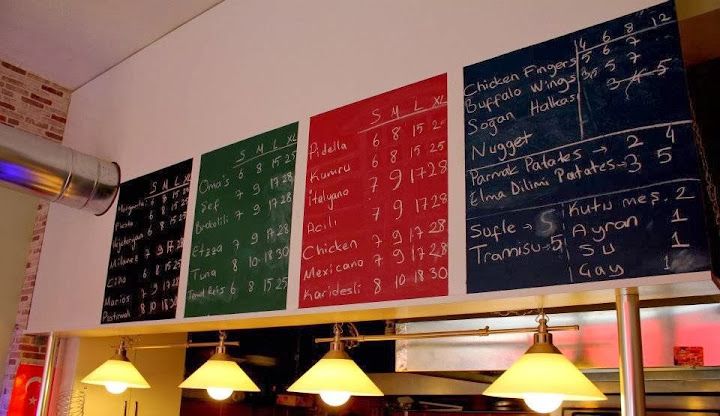 S M L XL
Margarita 6 8 15 25
Pasta 6 8 15 25
Vejeteryan 6 8 15 25
Milano 7 9 17 28
Ciao 6 8 15 25
Marios 7 9 17 28
Pastırmalı 8 10 18 30
S M L XL
Oma's 6 8 15 25
Şef 7 9 17 28
Brokolili 7 9 17 28
Etzza 7 9 17 28
Tuna 8 10 18 30
6 8 15 25
S M L XL
Pidella 6 8 15 25
Kumru 6 8 15 25
İtalyano 7 9 17 28
Acılı 7 9 17 28
Chicken 7 9 17 28
Mexicano 7 9 17 28
Karidesli 8 10 18 30
4 6 8 12
Chicken Fingers 5 6 7
Buffalo Wings 3,5 5 7
Soğan Halkası 3 4 5
Nugget
Parmak Patates → 2 4
Elma Dilimi Patates → 3 5
Sufle → 5
Tramisu → 5
Kutu meş. 2
Ayran 1
Su 1
Çay 1